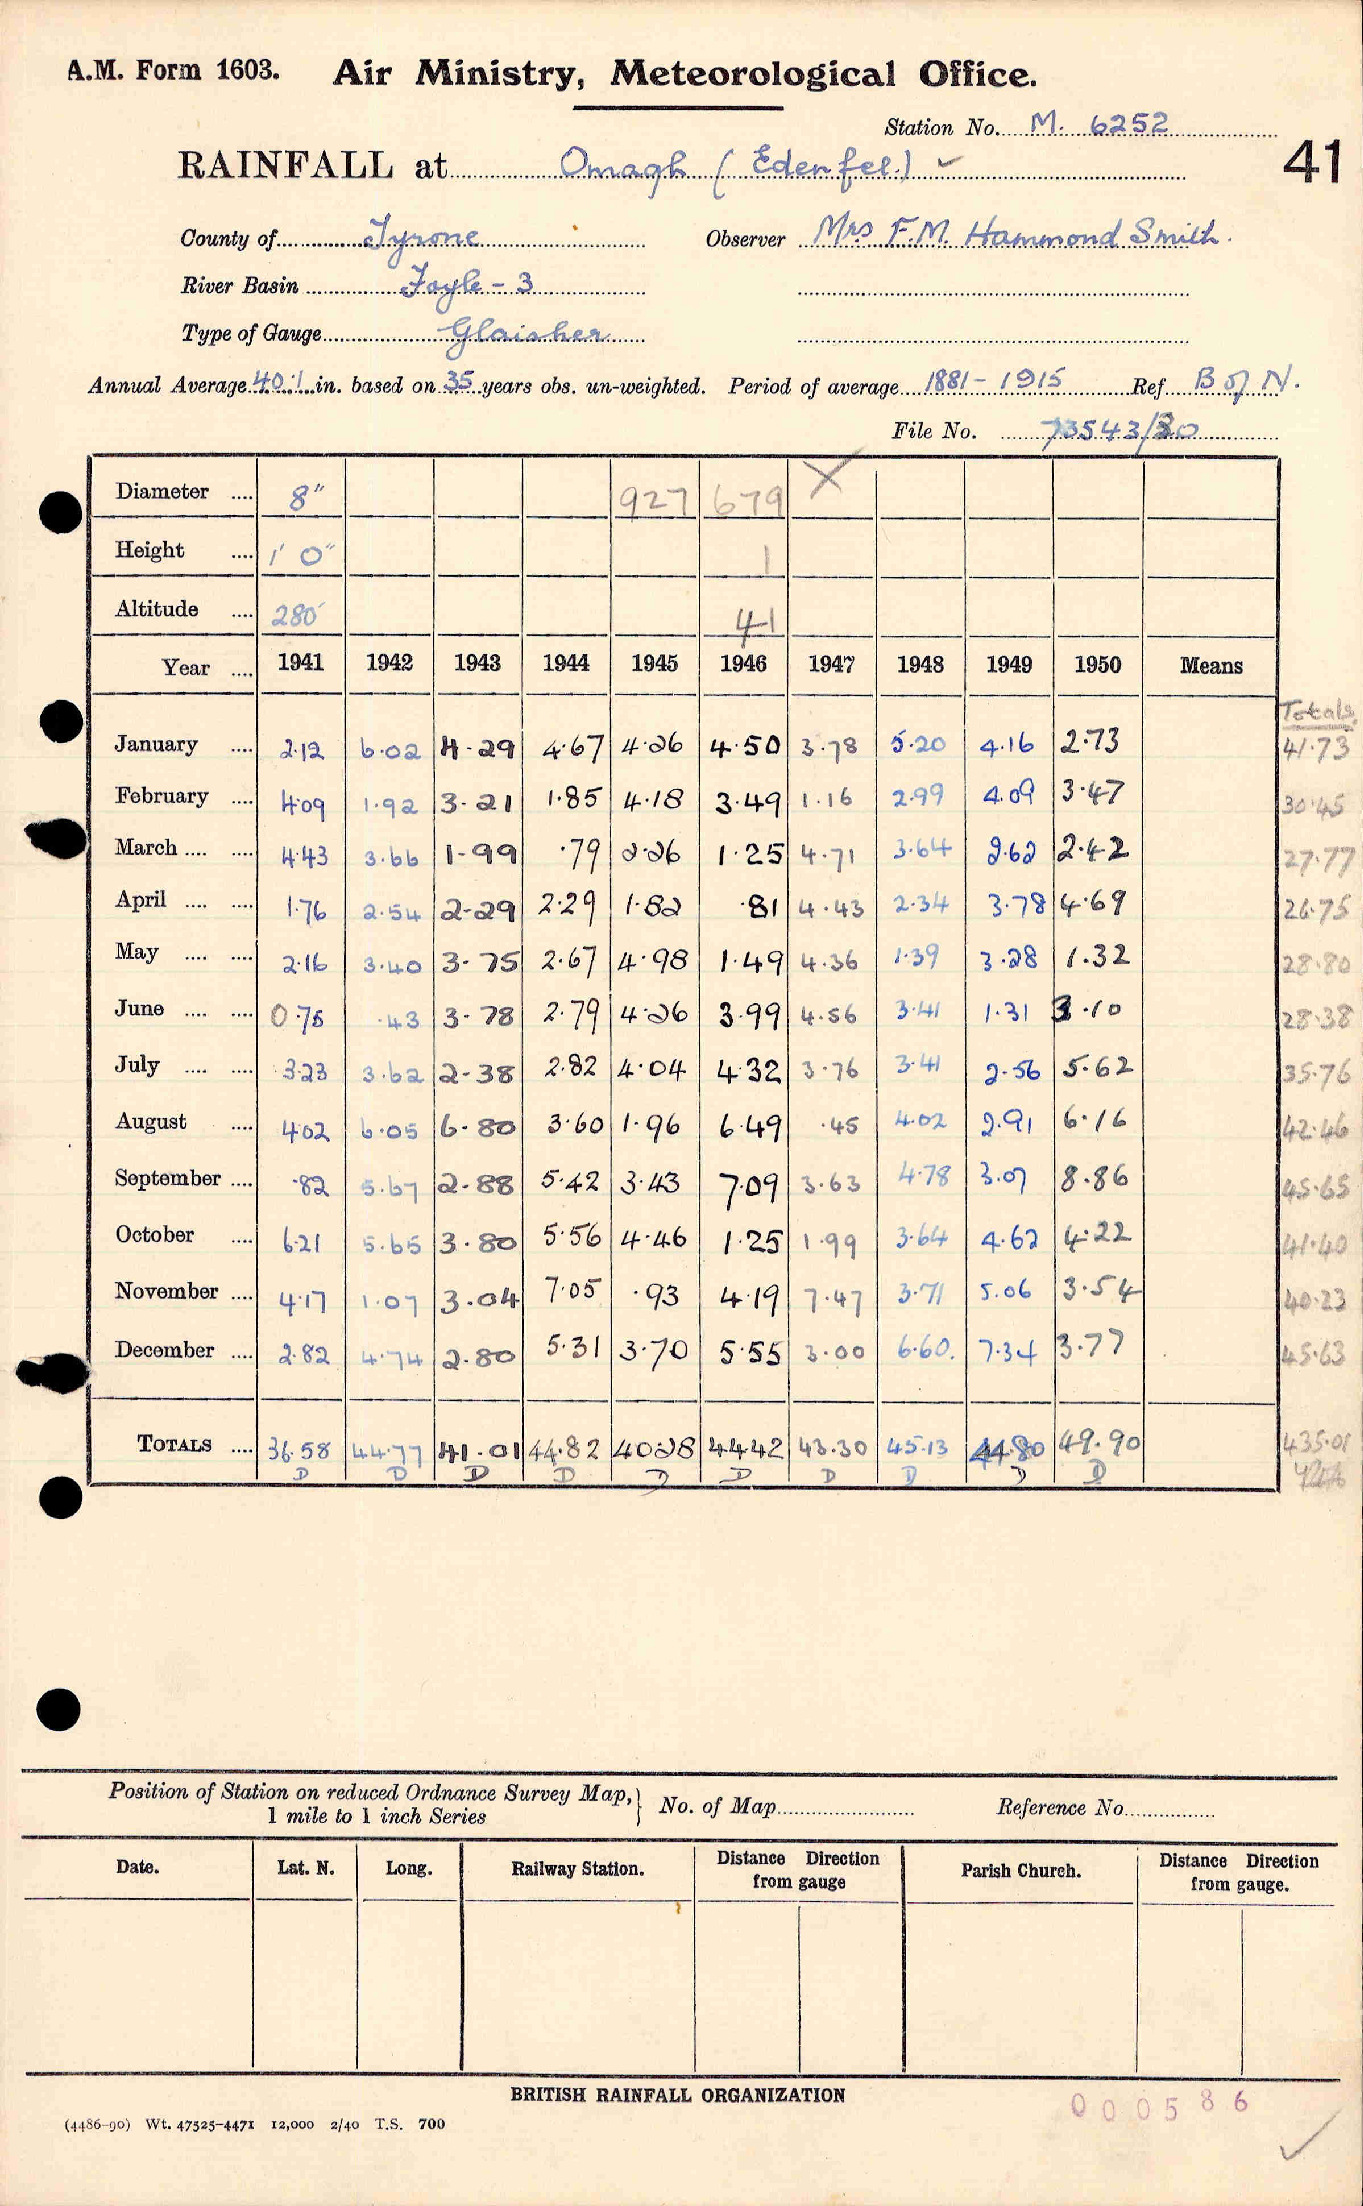 A.M. Form 1603. Air Ministry, Meteorological Office.
Station No. M. 6252
RAINFALL at Omagh (Edenfel.) ✓ 41
County of Tyrone Observer Mrs F.M. Hammond Smith.
River Basin Foyle - 3
Type of Gauge Glaisher
Annual Average 40.1 in. based on 35 years obs. un-weighted. Period of average 1881 - 1915 Ref. B of N.
File No. 73543/30
Diameter .... 8" 927 679 X
Height .... 1' 0" 1
Altitude .... 280' 41
Year .... 1941 1942 1943 1944 1945 1946 1947 1948 1949 1950 Means
Totals.
January .... 2.12 6.02 4.29 4.67 4.26 4.50 3.78 5.20 4.16 2.73 41.73
February .... 4.09 1.92 3.21 1.85 4.18 3.49 1.16 2.99 4.09 3.47 30.45
March .... .... 4.43 3.66 1.99 .79 2.26 1.25 4.71 3.64 2.62 2.42 27.77
April .... .... 1.76 2.54 2.29 2.29 1.82 .81 4.43 2.34 3.78 4.69 26.75
May .... .... 2.16 3.40 3.75 2.67 4.98 1.49 4.36 1.39 3.28 1.32 28.80
June .... .... 0.75 .43 3.78 2.79 4.26 3.99 4.56 3.41 1.31 3.10 28.38
July .... .... 3.23 3.62 2.38 2.82 4.04 4.32 3.76 3.41 2.56 5.62 35.76
August .... 4.02 6.05 6.80 3.60 1.96 6.49 .45 4.02 2.91 6.16 42.46
September .... .82 5.67 2.88 5.42 3.43 7.09 3.63 4.78 3.07 8.86 45.65
October .... 6.21 5.65 3.80 5.56 4.46 1.25 1.99 3.64 4.62 4.22 41.40
November .... 4.17 1.07 3.04 7.05 .93 4.19 7.47 3.71 5.06 3.54 40.23
December .... 2.82 4.74 2.80 5.31 3.70 5.55 3.00 6.60. 7.34 3.77 45.63
TOTALS .... 36.58 44.77 41.01 44.82 40.28 44.42 43.30 45.13 44.80 49.90 435.01
D D D D D D D D D D
Position of Station on reduced Ordnance Survey Map, } No. of Map Reference No.
1 mile to 1 inch Series
Date. Lat. N. Long. Railway Station. Distance Direction from gauge Parish Church. Distance Direction from gauge.
BRITISH RAINFALL ORGANIZATION
000586
(4486-90) Wt. 47525-4471 12,000 2/40 T.S. 700